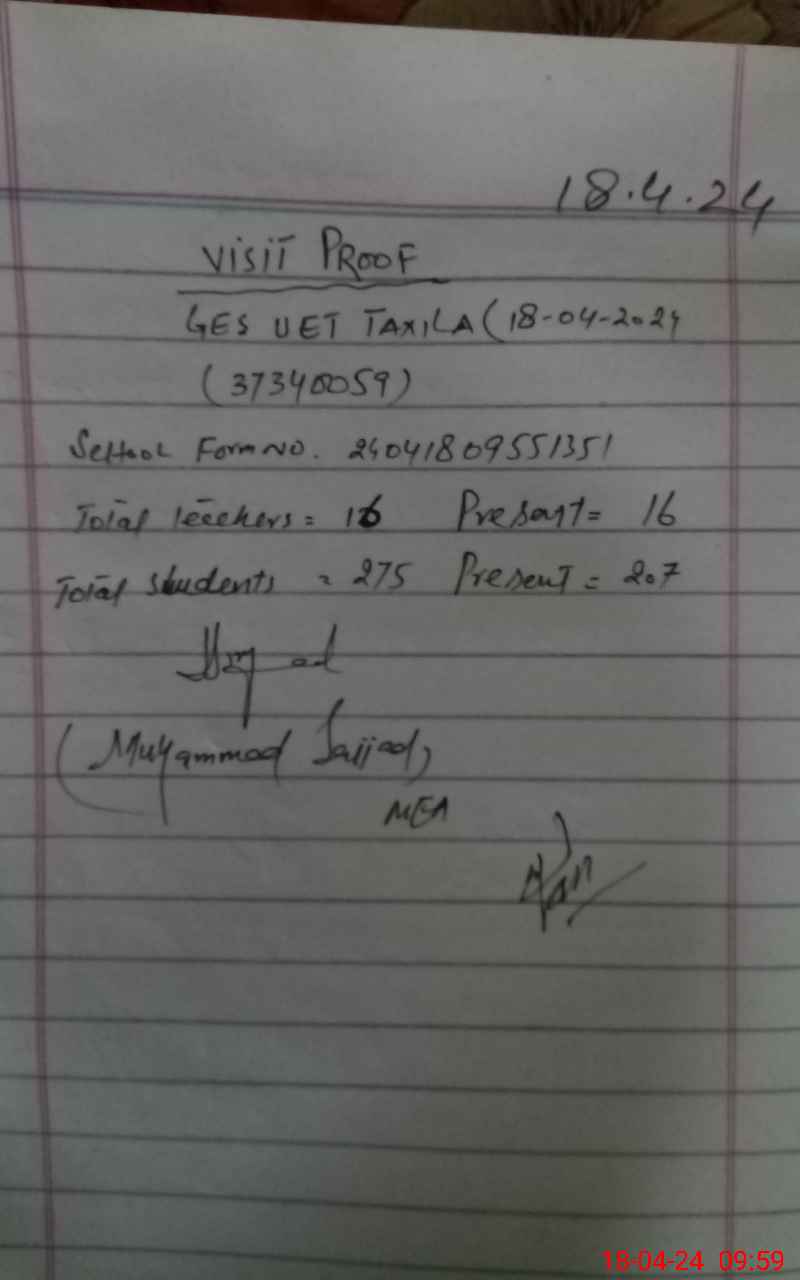 18.4.24
VISIT PROOF
GES UET TAXILA (18-04-2024
(37340059)
School Form No. 24041809551351
Total teachers = 16 Present = 16
Total students = 275 Present = 207
(Muhammad Sajjad)
MEA
18-04-24 09:59